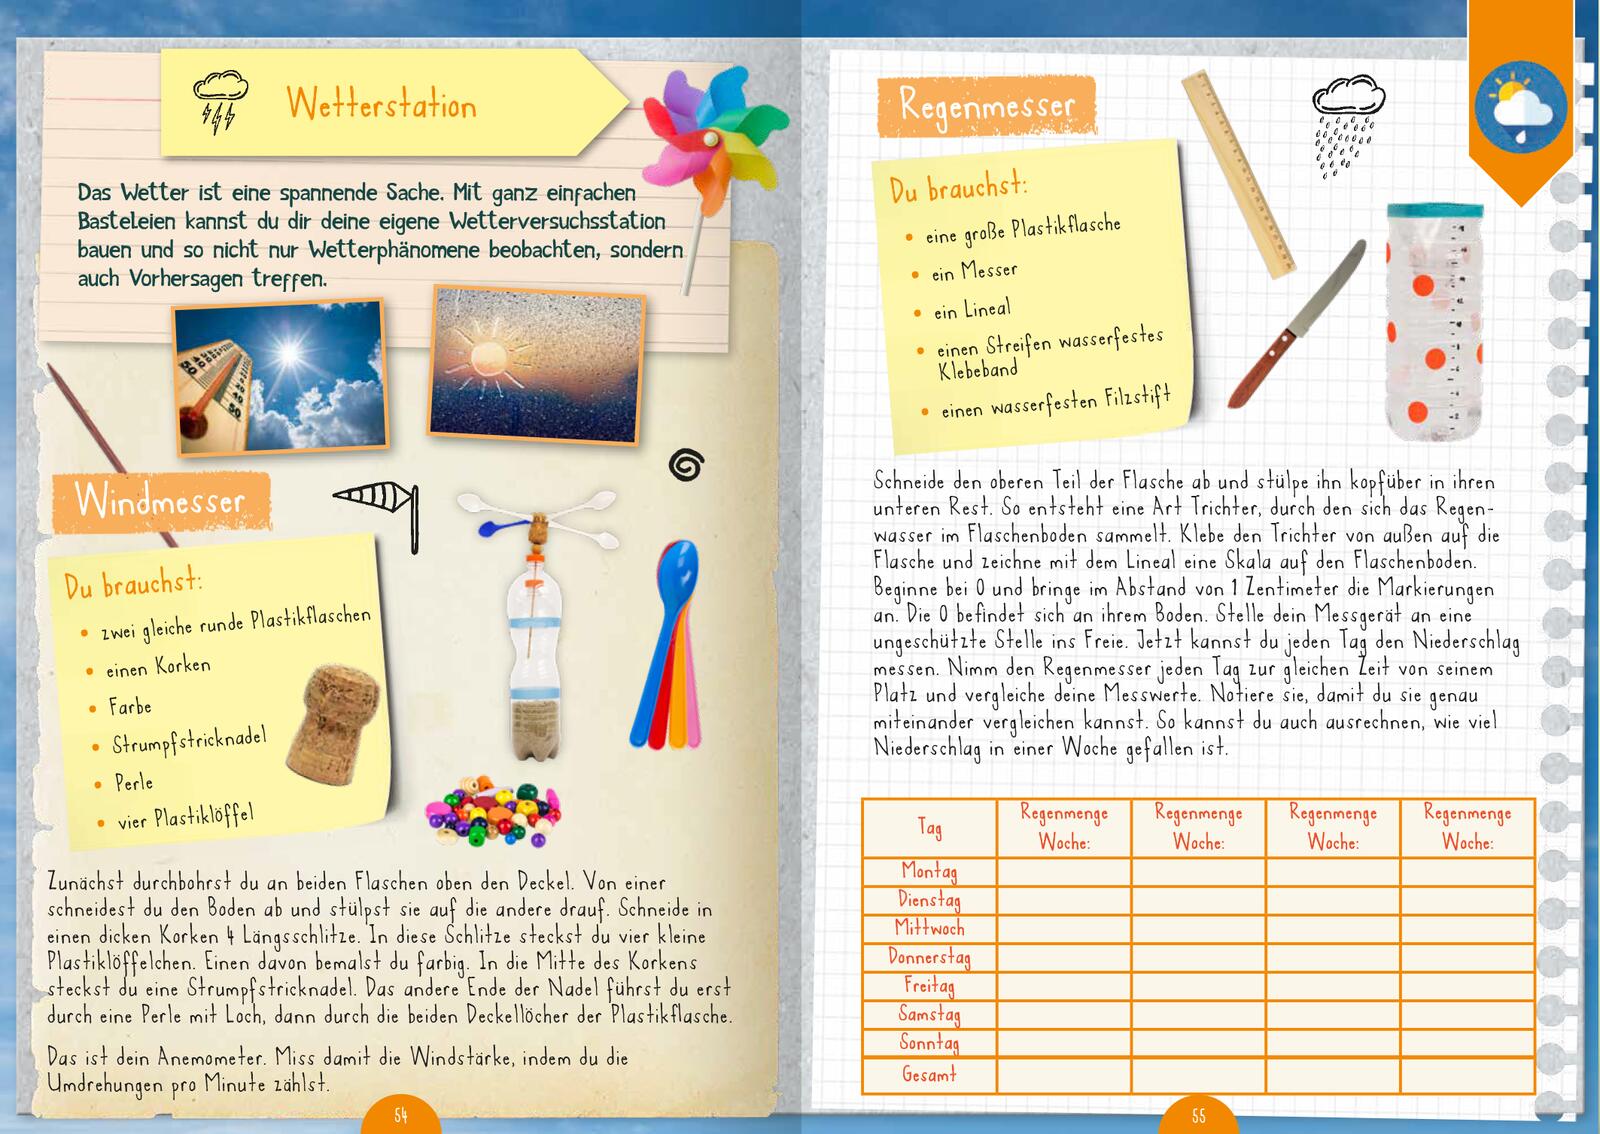 Wetterstation
Das Wetter ist eine spannende Sache. Mit ganz einfachen
Basteleien kannst du dir deine eigene Wetterversuchsstation
bauen und so nicht nur Wetterphänomene beobachten, sondern
auch Vorhersagen treffen.
Windmesser
Du brauchst:
• zwei gleiche runde Plastikflaschen
• einen Korken
• Farbe
• Strumpfstricknadel
• Perle
• vier Plastiklöffel
Zunächst durchbohrst du an beiden Flaschen oben den Deckel. Von einer
schneidest du den Boden ab und stülpst sie auf die andere drauf. Schneide in
einen dicken Korken 4 Längsschlitze. In diese Schlitze steckst du vier kleine
Plastiklöffelchen. Einen davon bemalst du farbig. In die Mitte des Korkens
steckst du eine Strumpfstricknadel. Das andere Ende der Nadel führst du erst
durch eine Perle mit Loch, dann durch die beiden Deckellöcher der Plastikflasche.
Das ist dein Anemometer. Miss damit die Windstärke, indem du die
Umdrehungen pro Minute zählst.
54
Regenmesser
Du brauchst:
• eine große Plastikflasche
• ein Messer
• ein Lineal
• einen Streifen wasserfestes
Klebeband
• einen wasserfesten Filzstift
Schneide den oberen Teil der Flasche ab und stülpe ihn kopfüber in ihren
unteren Rest. So entsteht eine Art Trichter, durch den sich das Regen-
wasser im Flaschenboden sammelt. Klebe den Trichter von außen auf die
Flasche und zeichne mit dem Lineal eine Skala auf den Flaschenboden.
Beginne bei 0 und bringe im Abstand von 1 Zentimeter die Markierungen
an. Die 0 befindet sich an ihrem Boden. Stelle dein Messgerät an eine
ungeschützte Stelle ins Freie. Jetzt kannst du jeden Tag den Niederschlag
messen. Nimm den Regenmesser jeden Tag zur gleichen Zeit von seinem
Platz und vergleiche deine Messwerte. Notiere sie, damit du sie genau
miteinander vergleichen kannst. So kannst du auch ausrechnen, wie viel
Niederschlag in einer Woche gefallen ist.
Tag Regenmenge Woche: Regenmenge Woche: Regenmenge Woche: Regenmenge Woche:
Montag
Dienstag
Mittwoch
Donnerstag
Freitag
Samstag
Sonntag
Gesamt
55